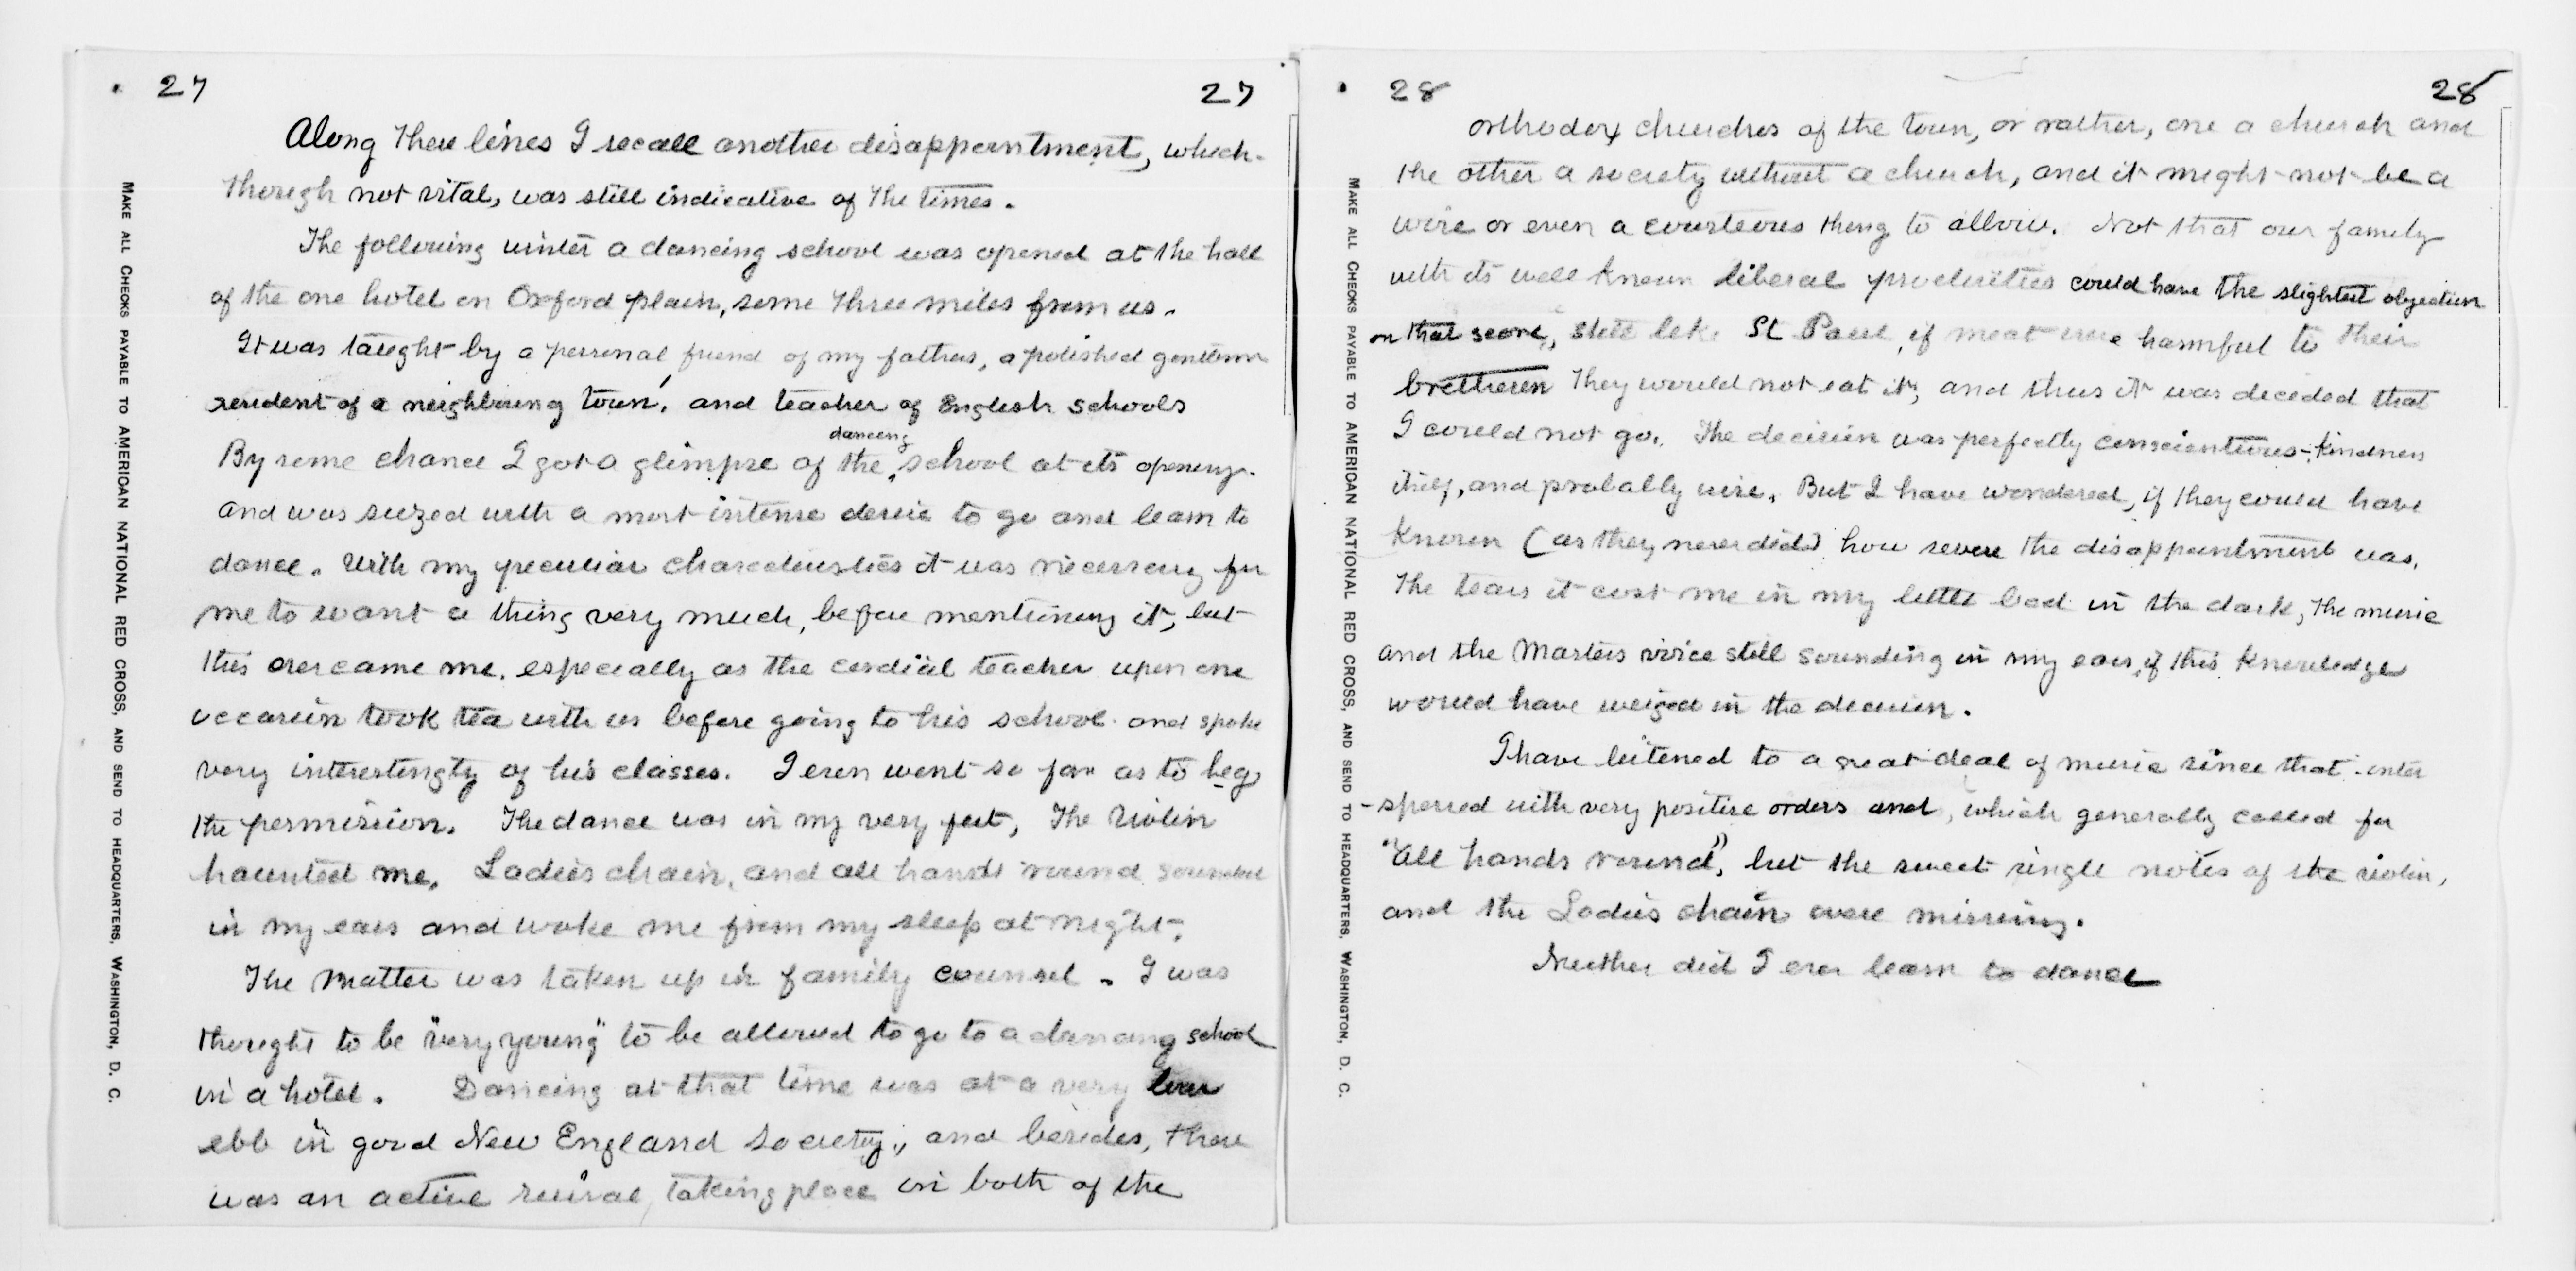 27
27
Along these lines I recall another disappointment, which
though not vital, was still indicative of the times.
The following winter a dancing school was opened at the hall
of the one hotel on Oxford plain, some three miles from us.
It was taught by a personal friend of my fathers, a polished gentleman
resident of a neighboring town, and teacher of English schools
dancing
By some chance I got a glimpse of the school at its opening.
and was seized with a most intense desire to go and learn to
dance. With my peculiar characteristics it was necessary for
me to want a thing very much, before mentioning it, but
this overcame me, especially as the cordial teacher upon one
occasion took tea with us before going to his school and spoke
very interestingty of his classes. I even went so far as to beg
the permission. The dance was in my very feet, The violin
haunted me, Ladies chain, and all hands round sounded
in my ears and woke me from my sleep at night.
The matter was taken up in family counsel. I was
thought to be "very young" to be allowed to go to a dancing school
in a hotel. Dancing at that time was at a very low
ebb in good New England society, and besides, there
was an active revival, taking place in both of the
MAKE ALL CHECKS PAYABLE TO AMERICAN NATIONAL RED CROSS, AND SEND TO HEADQUARTERS, WASHINGTON, D. C.
28
28
orthodox churches of the town, or rather, one a church and
the other a society without a church, and it might not be a
wise or even a courteous thing to allow. Not that our family
with its well known liberal proclivities could have the slightest objection
on that score, still like St Paul, if meat were harmful to their
bretheren they would not eat it, and thus it was decided that
I could not go. The decision was perfectly conscientious - kindness
itself, and probably wise. But I have wondered, if they could have
known (as they never did) how severe the disappointment was.
The tears it cost me in my little bed in the dark, the music
and the Masters voice still sounding in my ears, if this knowledge
would have weiged in the decision.
I have listened to a great deal of music since that inter
-spersed with very positive orders and, which generally called for
"all hands round", but the sweet single notes of the violin,
and the Ladies chain were missing.
Neither did I ever learn to dance
MAKE ALL CHECKS PAYABLE TO AMERICAN NATIONAL RED CROSS, AND SEND TO HEADQUARTERS, WASHINGTON, D. C.